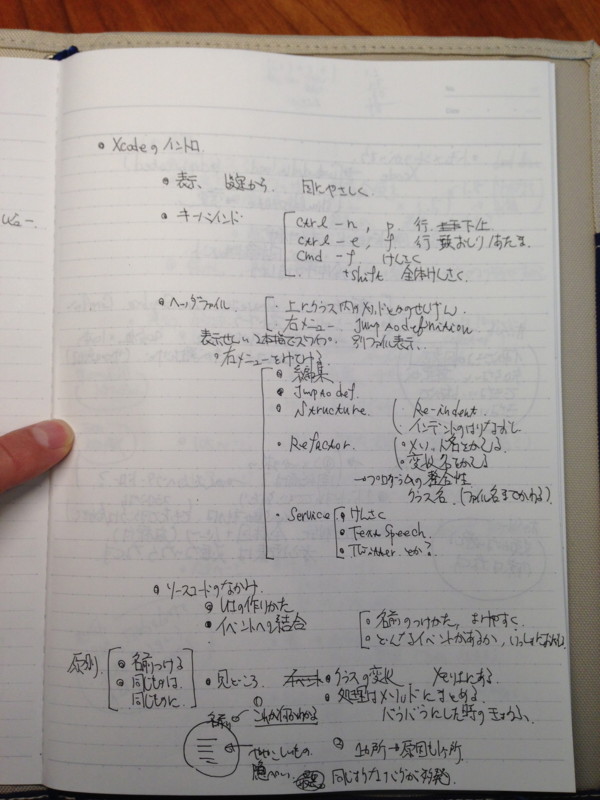 ・Xcodeのイントロ
・表示、設定から、目にやさしく
・キーバインド
ctrl-n, p. 行 下上
ctrl-e, f. 行 おしり/あたま
cmd-f. けんさく
+shift 全体けんさく
・ヘッダファイル
・上にクラス内のメソッドとかのせんげん
・右メニュー Jump to definition
2本指でスワイプ 別ファイル表示
・右メニューを
・編集
・Jump to def.
・Structure
・Re-indent
・インデントの
・Refactor
・メソッド名をかえる
・変数名をかえる
→プログラムの安全性
クラス名 (ファイル名までかわる)
・Service
・けんさく
・Text Speech
・Twitterとか?
・ソースコードのなかみ
・UIの作りかた
・イベントへの結合
・名前のつけかた、
・どんなイベントがあるか、
原則
・名前つける
・同じものは、
同じものに
・見どころ
・クラスの変数 メモリにある
・処理はメソッドにまとめる
バラバラにした時の
名前
これが何かわかる
ややこしいもの
1ヵ所→原因も1ヶ所
同じようなバグが多発